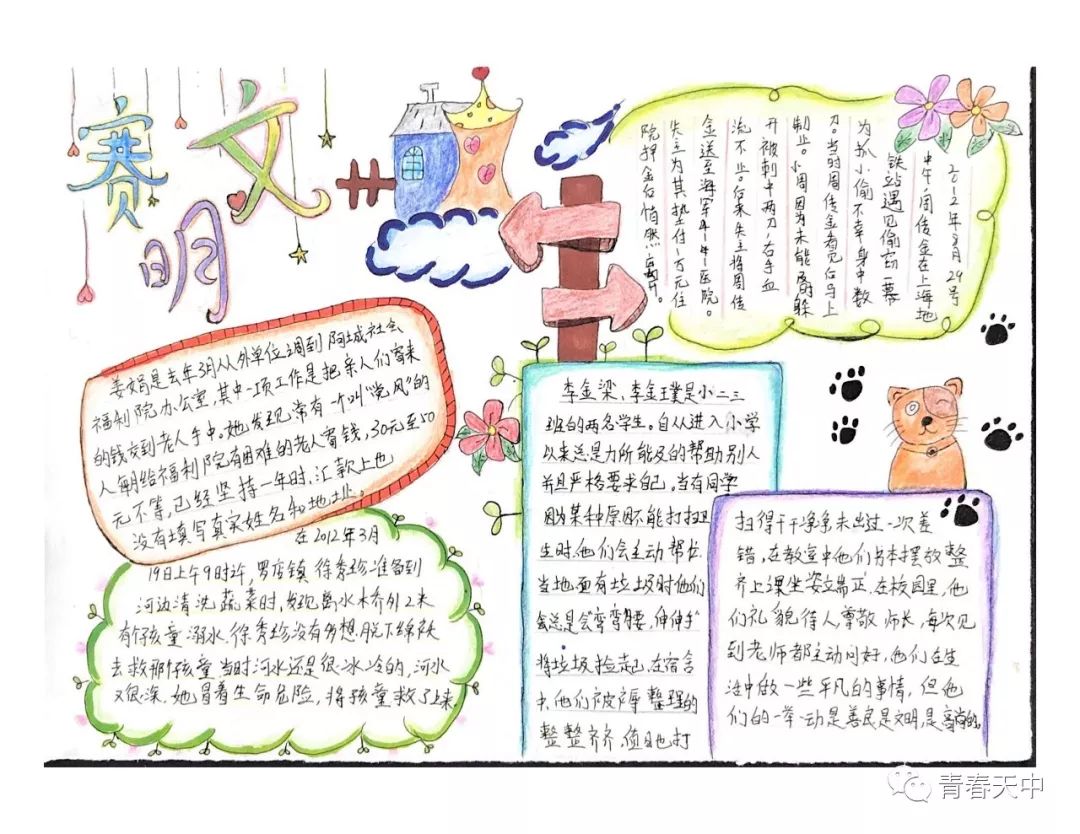 赛文明
2012年8月29号
中午,周传金在上海地
铁站遇见偷窃一幕
为抓小偷不幸身中数
刀。当时周传金看见后马上
制止。小周因为未能及时躲
开被刺中两刀,右手血
流不止。后来失主将周传
金送至海军411医院。
失主为其垫付1万元住
院押金后悄然离开。
姜娟是去年3月从外单位调到阿城社会
福利院办公室,其中一项工作是把亲人们寄来
的钱交到老人手中。她发现常有一个叫“党风”的
人每月给福利院有困难的老人寄钱,30元至50
元不等,已经坚持一年时,汇款上也
没有填写真实姓名和地址。
在2012年3月
19日上午9时许,罗店镇徐秀珍准备到
河边清洗蔬菜时,发现离水木桥外2米
有个孩童溺水,徐秀珍没有多想,脱下绵袄
去救那个孩童,当时河水还是很冰冷的,河水
又很深,她冒着生命危险,将孩童救了上来.
李金梁、李金璞是小二三
班的两名学生。自从进入小学
以来总是力所能及的帮助别人
并且严格要求自己。当有同学
因为某种原因不能打扫卫
生时,他们会主动帮忙.
当地面有垃圾时他们
总是会“弯弯腰,伸伸手”
将垃圾捡起,在宿舍
中,他们被褥整理的
整整齐齐,值日也打
扫得干干净净未出过一次差
错,在教室中他们书本摆放整
齐上课坐姿端正,在校园里,他
们礼貌待人尊敬师长,每次见
到老师都主动问好,他们在生
活中做一些平凡的事情,但他
们的一举一动是善良是文明,是高尚的。
青春天中